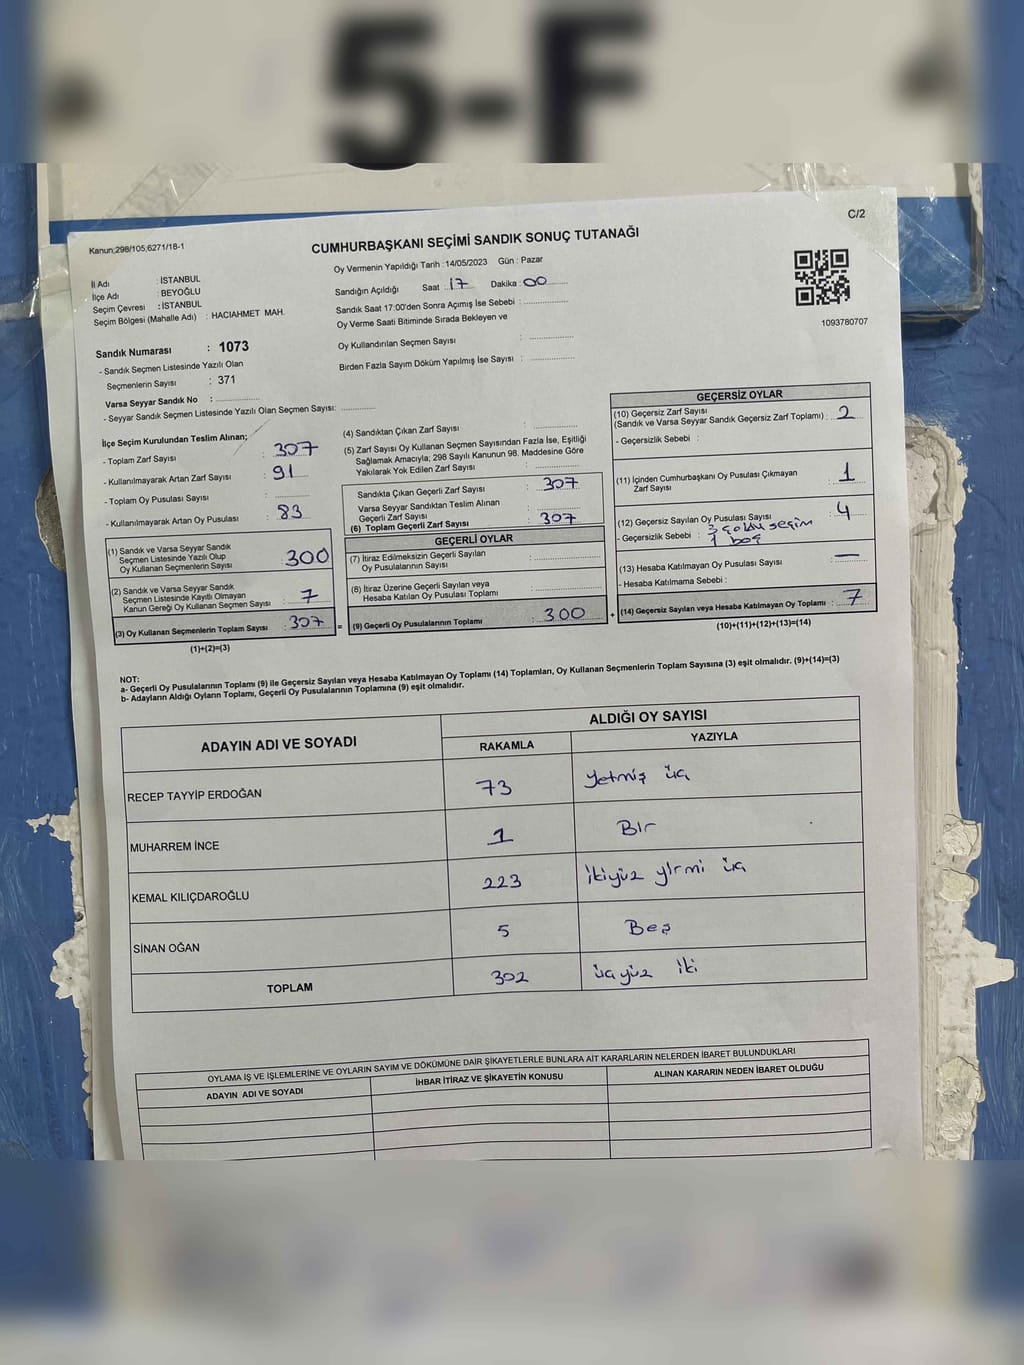 5-F
C/2
Kanun;298/105,6271/18-1
CUMHURBAŞKANI SEÇİMİ SANDIK SONUÇ TUTANAĞI
İl Adı : İSTANBUL
İlçe Adı : BEYOĞLU
Seçim Çevresi : İSTANBUL
Seçim Bölgesi (Mahalle Adı) : HACIAHMET MAH.
Oy Vermenin Yapıldığı Tarih :14/05/2023 Gün : Pazar
Sandığın Açıldığı Saat : 17 Dakika : 00
Sandık Saat 17:00'den Sonra Açımış İse Sebebi :
Oy Verme Saati Bitiminde Sırada Bekleyen ve
Oy Kullandırılan Seçmen Sayısı :
Birden Fazla Sayım Döküm Yapılmış İse Sayısı :
1093780707
Sandık Numarası : 1073
- Sandık Seçmen Listesinde Yazılı Olan
Seçmenlerin Sayısı : 371
Varsa Seyyar Sandık No :
- Seyyar Sandık Seçmen Listesinde Yazılı Olan Seçmen Sayısı:
İlçe Seçim Kurulundan Teslim Alınan;
- Toplam Zarf Sayısı : 307
- Kullanılmayarak Artan Zarf Sayısı : 91
- Toplam Oy Pusulası Sayısı :
- Kullanılmayarak Artan Oy Pusulası : 83
(1) Sandık ve Varsa Seyyar Sandık
Seçmen Listesinde Yazılı Olup
Oy Kullanan Seçmenlerin Sayısı : 300
(2) Sandık ve Varsa Seyyar Sandık
Seçmen Listesinde Kayıtlı Olmayan
Kanun Gereği Oy Kullanan Seçmen Sayısı : 7
(3) Oy Kullanan Seçmenlerin Toplam Sayısı : 307 =
(1)+(2)=(3)
(4) Sandıktan Çıkan Zarf Sayısı :
(5) Zarf Sayısı Oy Kullanan Seçmen Sayısından Fazla İse, Eşitliği
Sağlamak Amacıyla; 298 Sayılı Kanunun 98. Maddesine Göre
Yakılarak Yok Edilen Zarf Sayısı :
Sandıkta Çıkan Geçerli Zarf Sayısı : 307
Varsa Seyyar Sandıktan Teslim Alınan
Geçerli Zarf Sayısı :
(6) Toplam Geçerli Zarf Sayısı : 307
GEÇERLİ OYLAR
(7) İtiraz Edilmeksizin Geçerli Sayılan
Oy Pusulasının Sayısı :
(8) İtiraz Üzerine Geçerli Sayılan veya
Hesaba Katılan Oy Pusulası Toplamı :
(9) Geçerli Oy Pusulalarının Toplamı : 300 +
GEÇERSİZ OYLAR
(10) Geçersiz Zarf Sayısı
(Sandık ve Varsa Seyyar Sandık Geçersiz Zarf Toplamı) : 2
- Geçersizlik Sebebi :
(11) İçinden Cumhurbaşkanı Oy Pusulası Çıkmayan
Zarf Sayısı : 1
(12) Geçersiz Sayılan Oy Pusulası Sayısı : 4
- Geçersizlik Sebebi : 3 çoklu seçim
1 boş
(13) Hesaba Katılmayan Oy Pusulası Sayısı : —
- Hesaba Katılmama Sebebi :
(14) Geçersiz Sayılan veya Hesaba Katılmayan Oy Toplamı : 7
(10)+(11)+(12)+(13)=(14)
NOT:
a- Geçerli Oy Pusulalarının Toplamı (9) ile Geçersiz Sayılan veya Hesaba Katılmayan Oy Toplamı (14) Toplamları, Oy Kullanan Seçmenlerin Toplam Sayısına (3) eşit olmalıdır. (9)+(14)=(3)
b- Adayların Aldığı Oyların Toplamı, Geçerli Oy Pusulalarının Toplamına (9) eşit olmalıdır.
ADAYIN ADI VE SOYADI
ALDIĞI OY SAYISI
RAKAMLA YAZIYLA
RECEP TAYYİP ERDOĞAN 73 Yetmiş üç
MUHARREM İNCE 1 Bir
KEMAL KILIÇDAROĞLU 223 ikiyüz yirmi üç
SİNAN OĞAN 5 Beş
TOPLAM 302 üçyüz iki
OYLAMA İŞ VE İŞLEMLERİNE VE OYLARIN SAYIM VE DÖKÜMÜNE DAİR ŞİKAYETLERLE BUNLARA AİT KARARLARIN NELERDEN İBARET BULUNDUKLARI
ADAYIN ADI VE SOYADI İHBAR İTİRAZ VE ŞİKAYETİN KONUSU ALINAN KARARIN NEDEN İBARET OLDUĞU